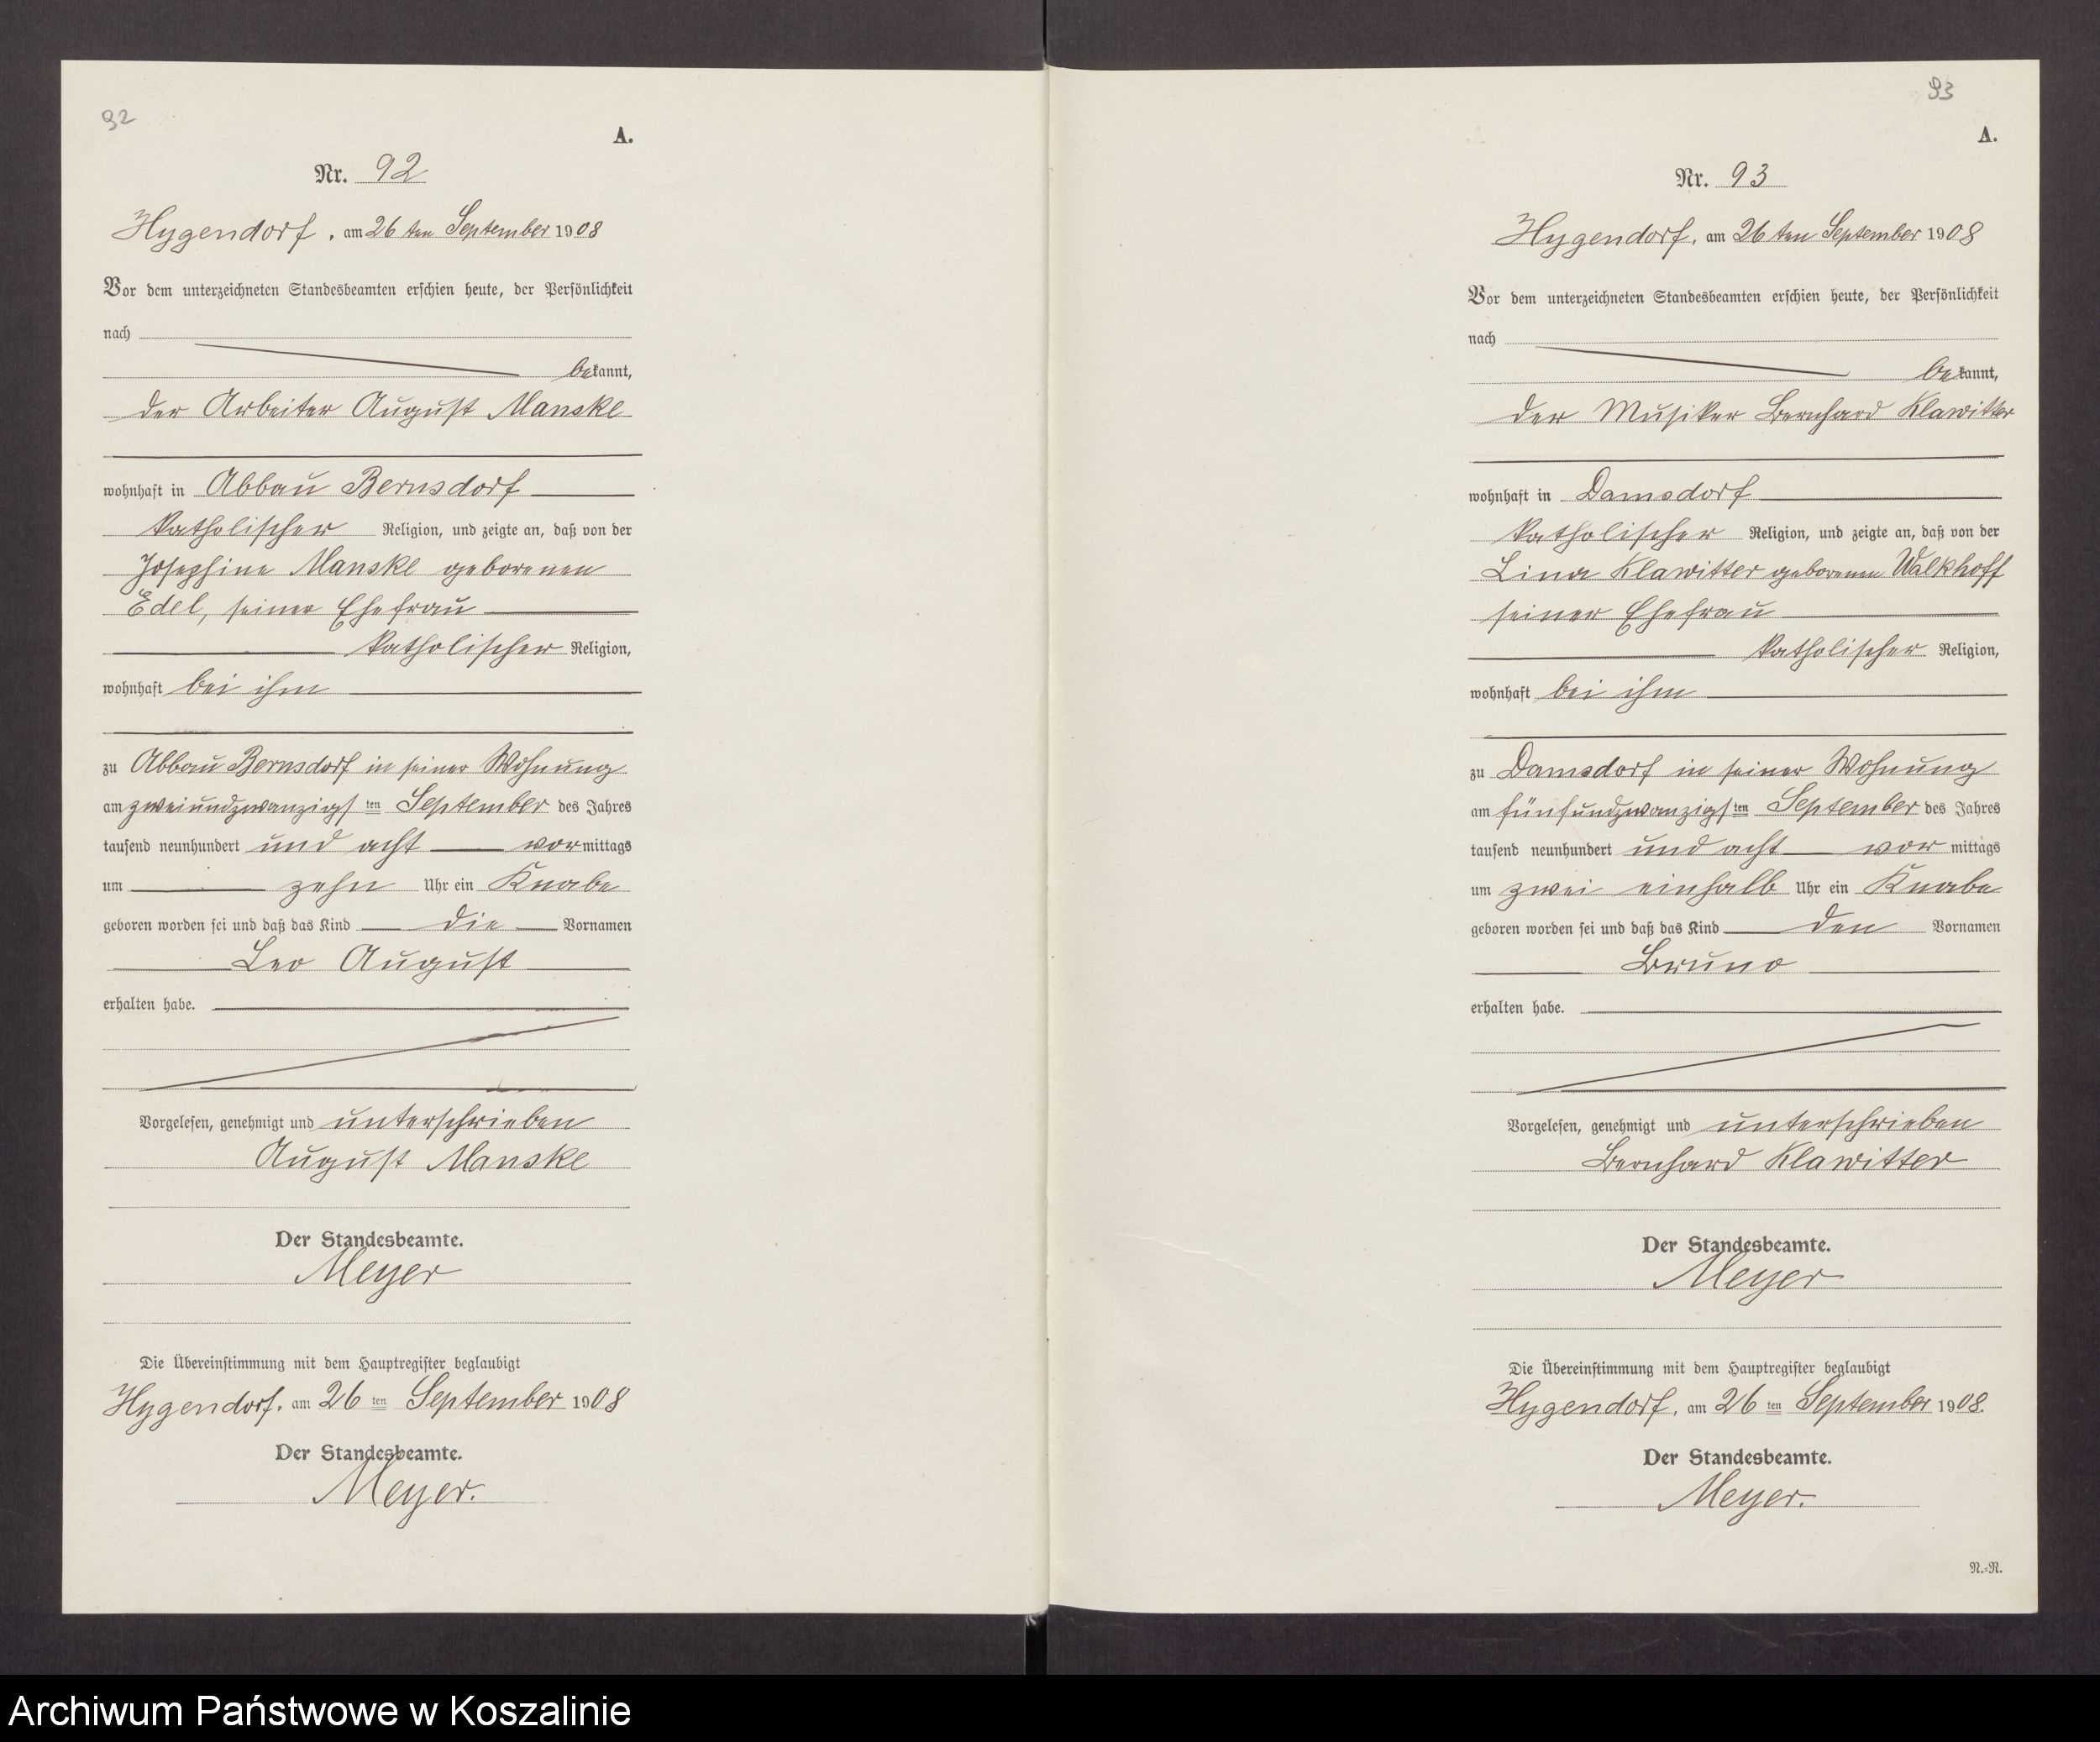 92
A.
Nr. 92
Hygendorf, am 26ten September 1908
Vor dem unterzeichneten Standesbeamten erschien heute, der Persönlichkeit
nach
bekannt,
der Arbeiter August Manske
wohnhaft in Abbau Bernsdorf
katholischer Religion, und zeigte an, daß von der
Josephine Manske geborenen
Edel, seiner Ehefrau
katholischer Religion,
wohnhaft bei ihm
zu Abbau Bernsdorf in seiner Wohnung
am zweiundzwanzigsten September des Jahres
tausend neunhundert und acht vormittags
um zehn Uhr ein Knabe
geboren worden sei und daß das Kind die Vornamen
Leo August
erhalten habe.
Vorgelesen, genehmigt und unterschrieben
August Manske
Der Standesbeamte.
Meyer
Die Übereinstimmung mit dem Hauptregister beglaubigt
Hygendorf, am 26 ten September 1908
Der Standesbeamte.
Meyer.
93
A.
Nr. 93
Hygendorf, am 26ten September 1908
Vor dem unterzeichneten Standesbeamten erschien heute, der Persönlichkeit
nach
bekannt,
der Musiker Bernhard Klawitter
wohnhaft in Damsdorf
katholischer Religion, und zeigte an, daß von der
Lina Klawitter geborenen Walkhoff
seiner Ehefrau
katholischer Religion,
wohnhaft bei ihm
zu Damsdorf in seiner Wohnung
am fünfundzwanzigsten September des Jahres
tausend neunhundert und acht vormittags
um zwei einhalb Uhr ein Knabe
geboren worden sei und daß das Kind den Vornamen
Bruno
erhalten habe.
Vorgelesen, genehmigt und unterschrieben
Bernhard Klawitter
Der Standesbeamte.
Meyer
Die Übereinstimmung mit dem Hauptregister beglaubigt
Hygendorf, am 26 ten September 1908.
Der Standesbeamte.
Meyer.
N.-N.
Archiwum Państwowe w Koszalinie